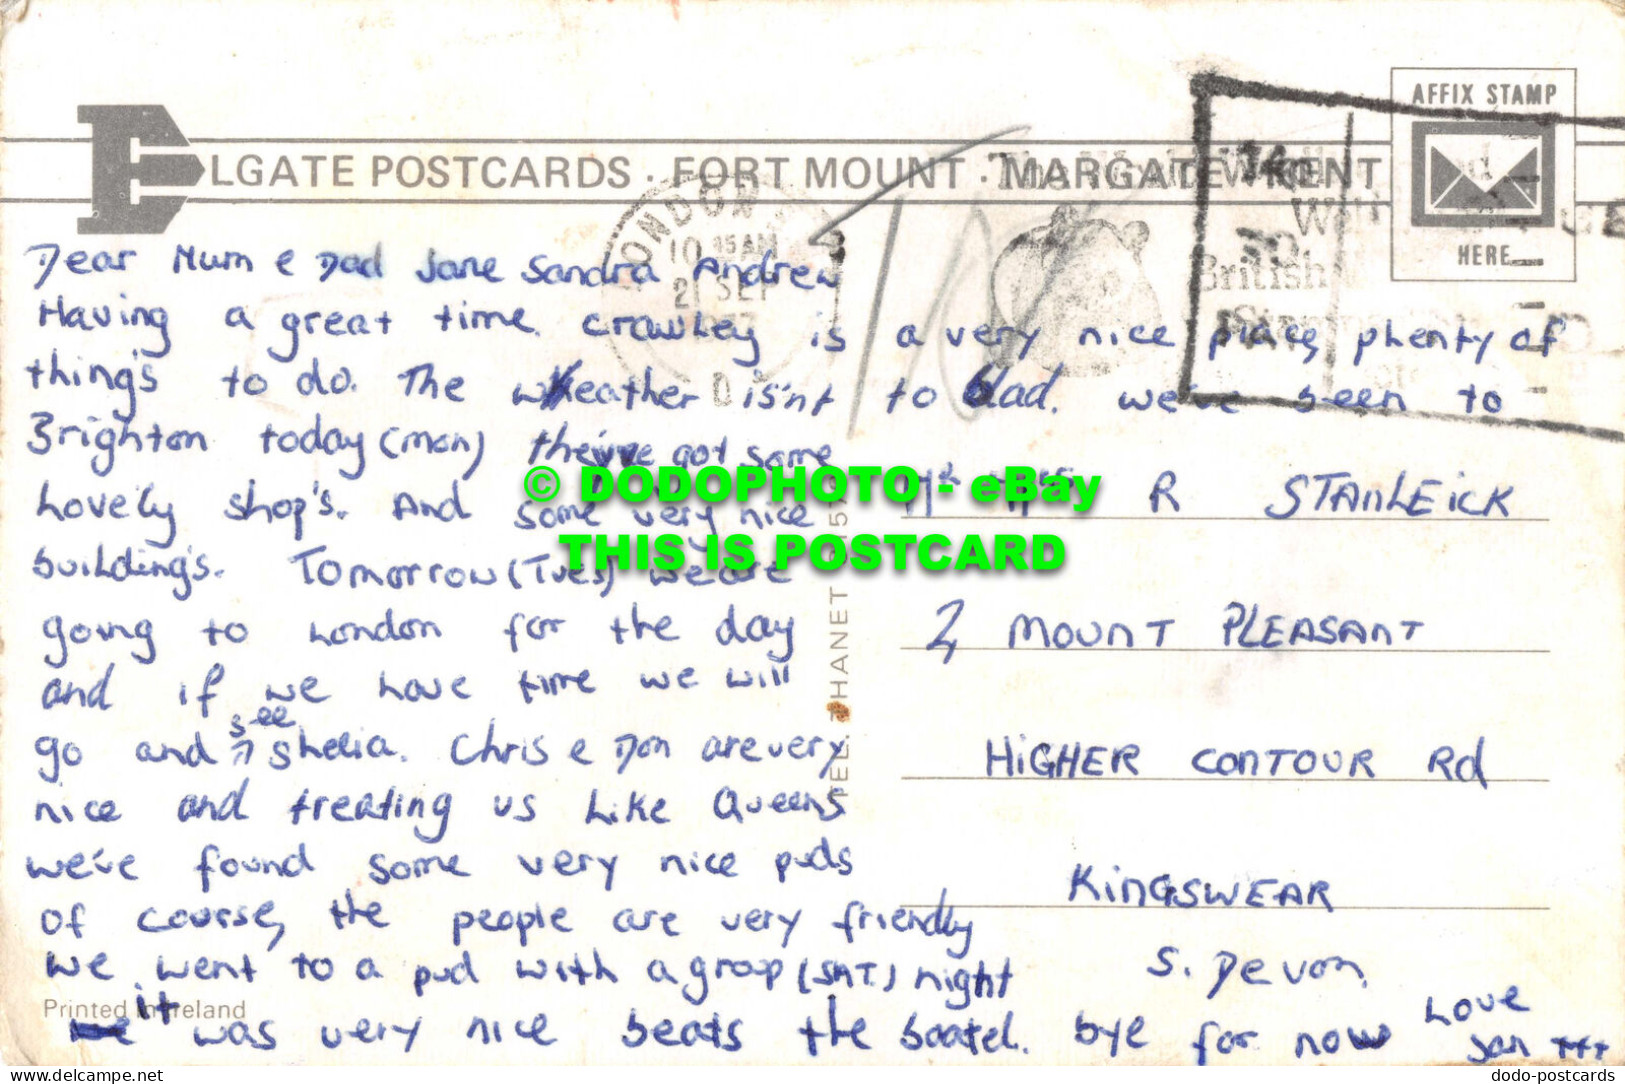 AFFIX STAMP
HERE
ELGATE POSTCARDS · FORT MOUNT · MARGATE · KENT
LONDON
10 45 AM
2 SEP
British
Dear Mum e Dad Jane Sandra Andrew
Having a great time. Crawley is a very nice place, plenty of
thing's to do. The weather is'nt to bad. we've been to
Brighton today (mon) they've got some
Lovely shop's. And some very nice
building's. Tomorrow (Tues) we are
going to London for the day
and if we have time we will
go and see Shelia. Chris e Don are very
nice and treating us Like Queens
we've found some very nice pubs
of course, the people are very friendly
we went to a pub with a group (SAT.) night
it was very nice beats the boatel. bye for now Love
Jan +++
Mr & Mrs R STANLEICK
2, MOUNT PLEASANT
HIGHER CONTOUR Rd
KINGSWEAR
S. Devon.
TEL. THANET
Printed in Ireland
© DODOPHOTO - eBay
THIS IS POSTCARD
delcampe.net
dodo-postcards